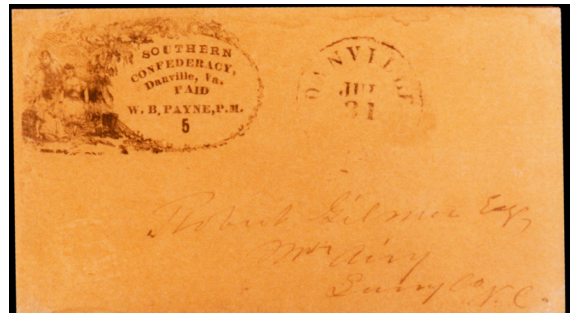 SOUTHERN
CONFEDERACY,
Danville, Va.
PAID
W. B. PAYNE, P.M.
5
DANVILLE
JUL
31
Robert Gilmer Esq,
Mt Airy
Surry Co. N.C.